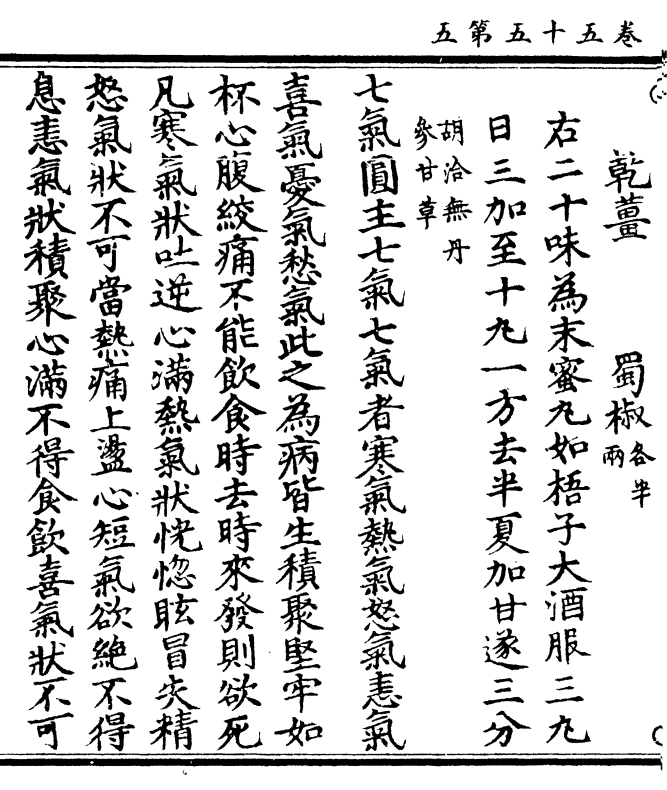 卷五十五第五
乾薑　蜀椒各半兩
右二十味為末蜜丸如梧子大酒服三丸
日三加至十丸一方去半夏加甘遂三分
胡洽無丹參甘草
七氣圓主七氣七氣者寒氣熱氣怒氣恚氣
喜氣憂氣愁氣此之為病皆生積聚堅牢如
杯心腹絞痛不能飲食時去時來發則欲死
凡寒氣狀吐逆心滿熱氣狀恍惚眩冒失精
怒氣狀不可當熱痛上盪心短氣欲絕不得
息恚氣狀積聚心滿不得食飲喜氣狀不可